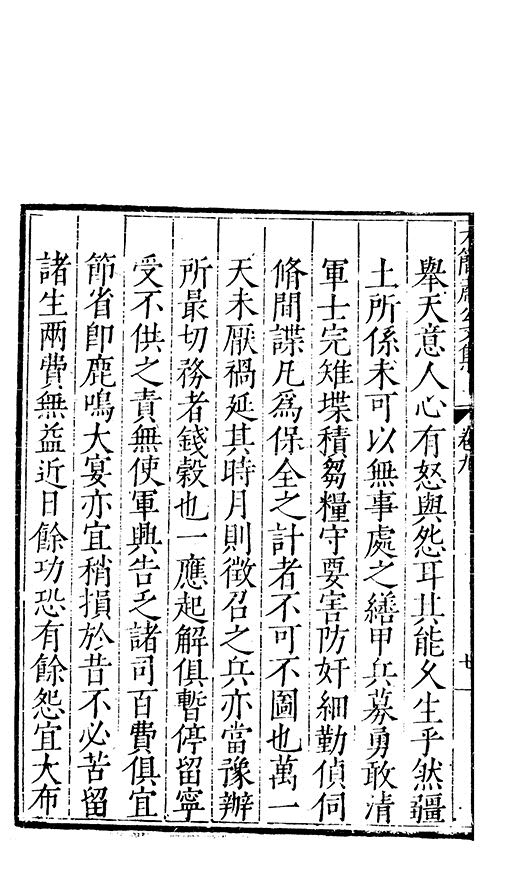 卷九
舉天意人心有怒與怨耳其能久生乎然疆
土所係未可以無事處之繕甲兵募勇敢清
軍士完雉堞積芻糧守要害防奸細勤偵伺
脩間諜凡爲保全之計者不可不圖也萬一
天未厭禍延其時月則徵召之兵亦當豫辦
所最切務者錢穀也一應起解俱暫停留寧
受不供之責無使軍興告乏諸司百費俱宜
節省卽鹿鳴大宴亦宜稍損於昔不必苦留
諸生兩費無益近日餘功恐有餘怨宜大布